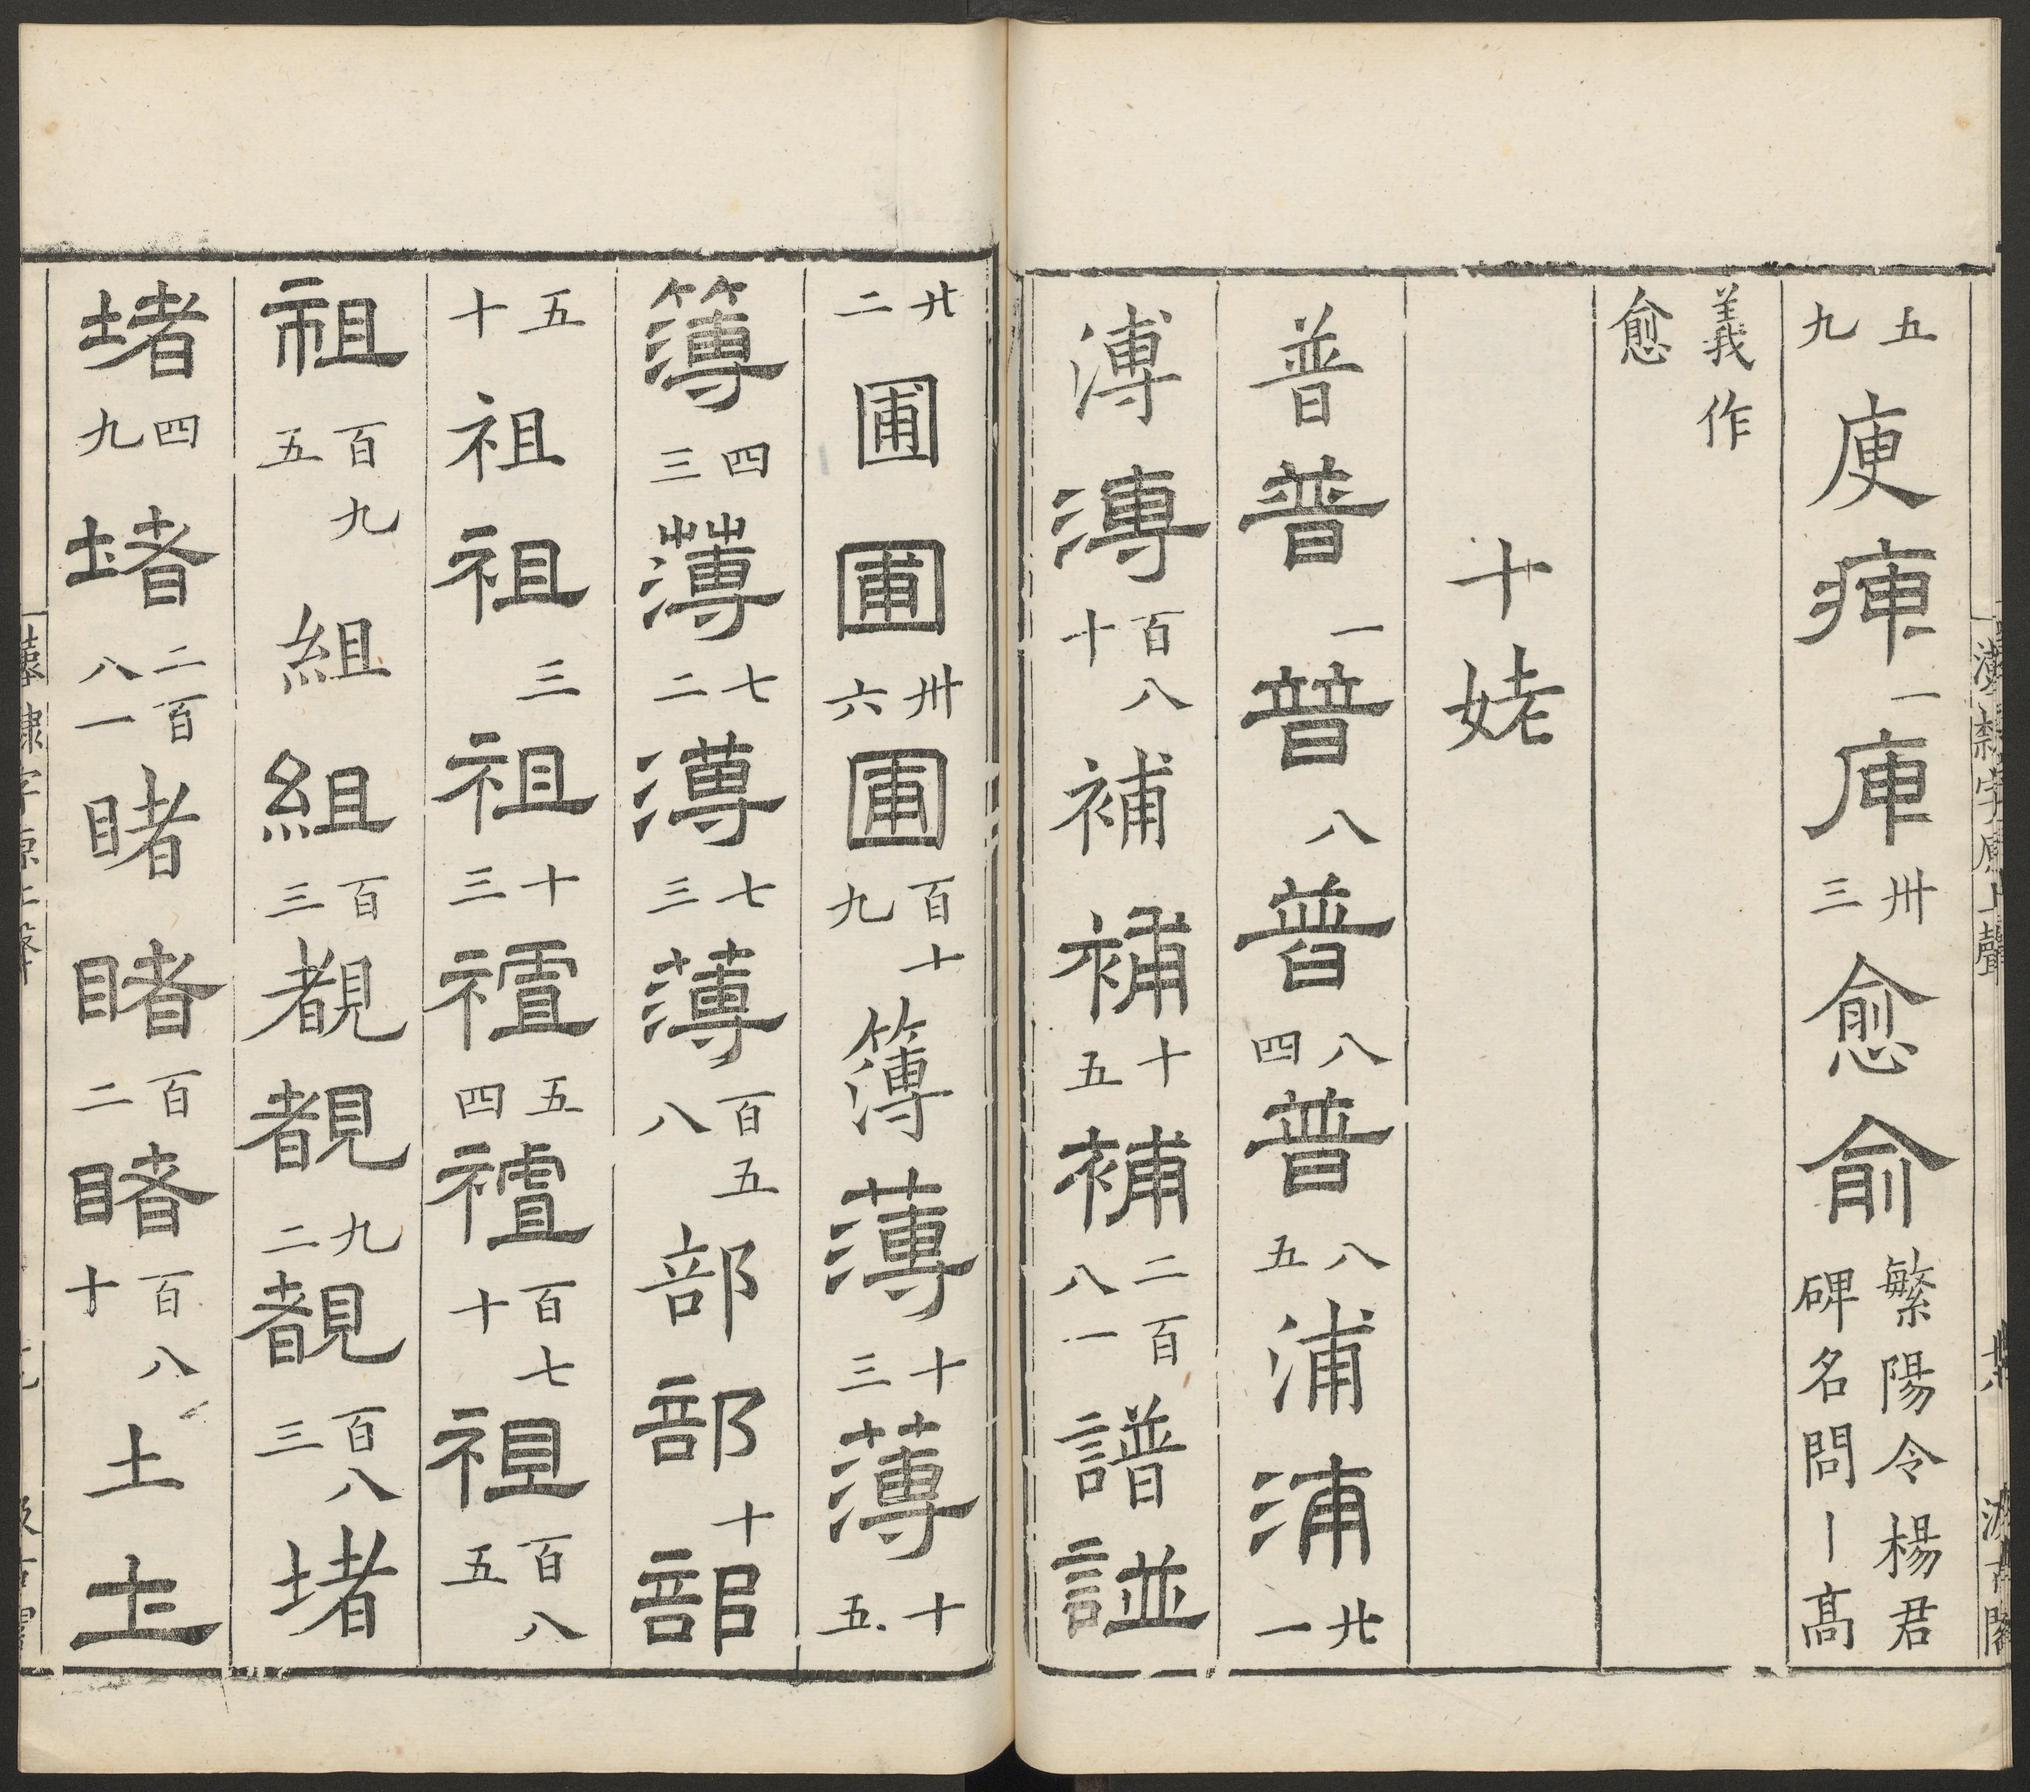 五九庾㢈一庫卅三愈俞繁陽令楊君碑名問丨高
義作愈
十姥
普普一普八普八四普八五浦浦廿一
溥溥百八十補補十五補二百八一譜
廿二圃圃卅六圃百十九簿薄十三薄十五
簿四三薄七二薄七三薄百五八部部十部
五十祖祖三祖十三𥙊五四𥙊百七十祖百八五
祖百九五組組百三覩覩九二覩百八三堵
堵四九堵二百八一睹睹百二睹百八十土土